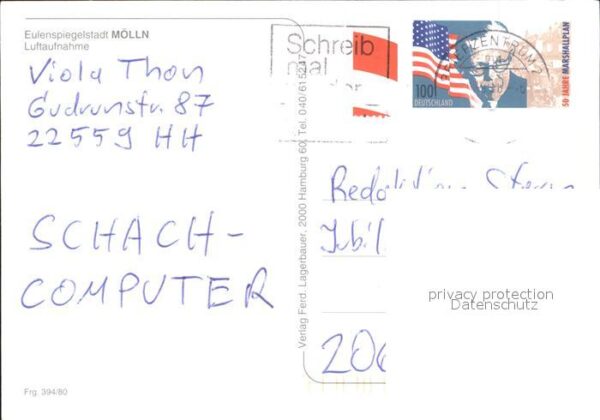 Eulenspiegelstadt MÖLLN
Luftaufnahme
Viola Thon
Gudrunstr. 87
22559 HH
SCHACH-
COMPUTER
Frg. 394/80
Verlag Ferd. Lagerbauer, 2000 Hamburg 60, Tel. 040/615247
Schreib
mal
100
DEUTSCHLAND
50 JAHRE MARSHALLPLAN
Jubil
200
privacy protection
Datenschutz